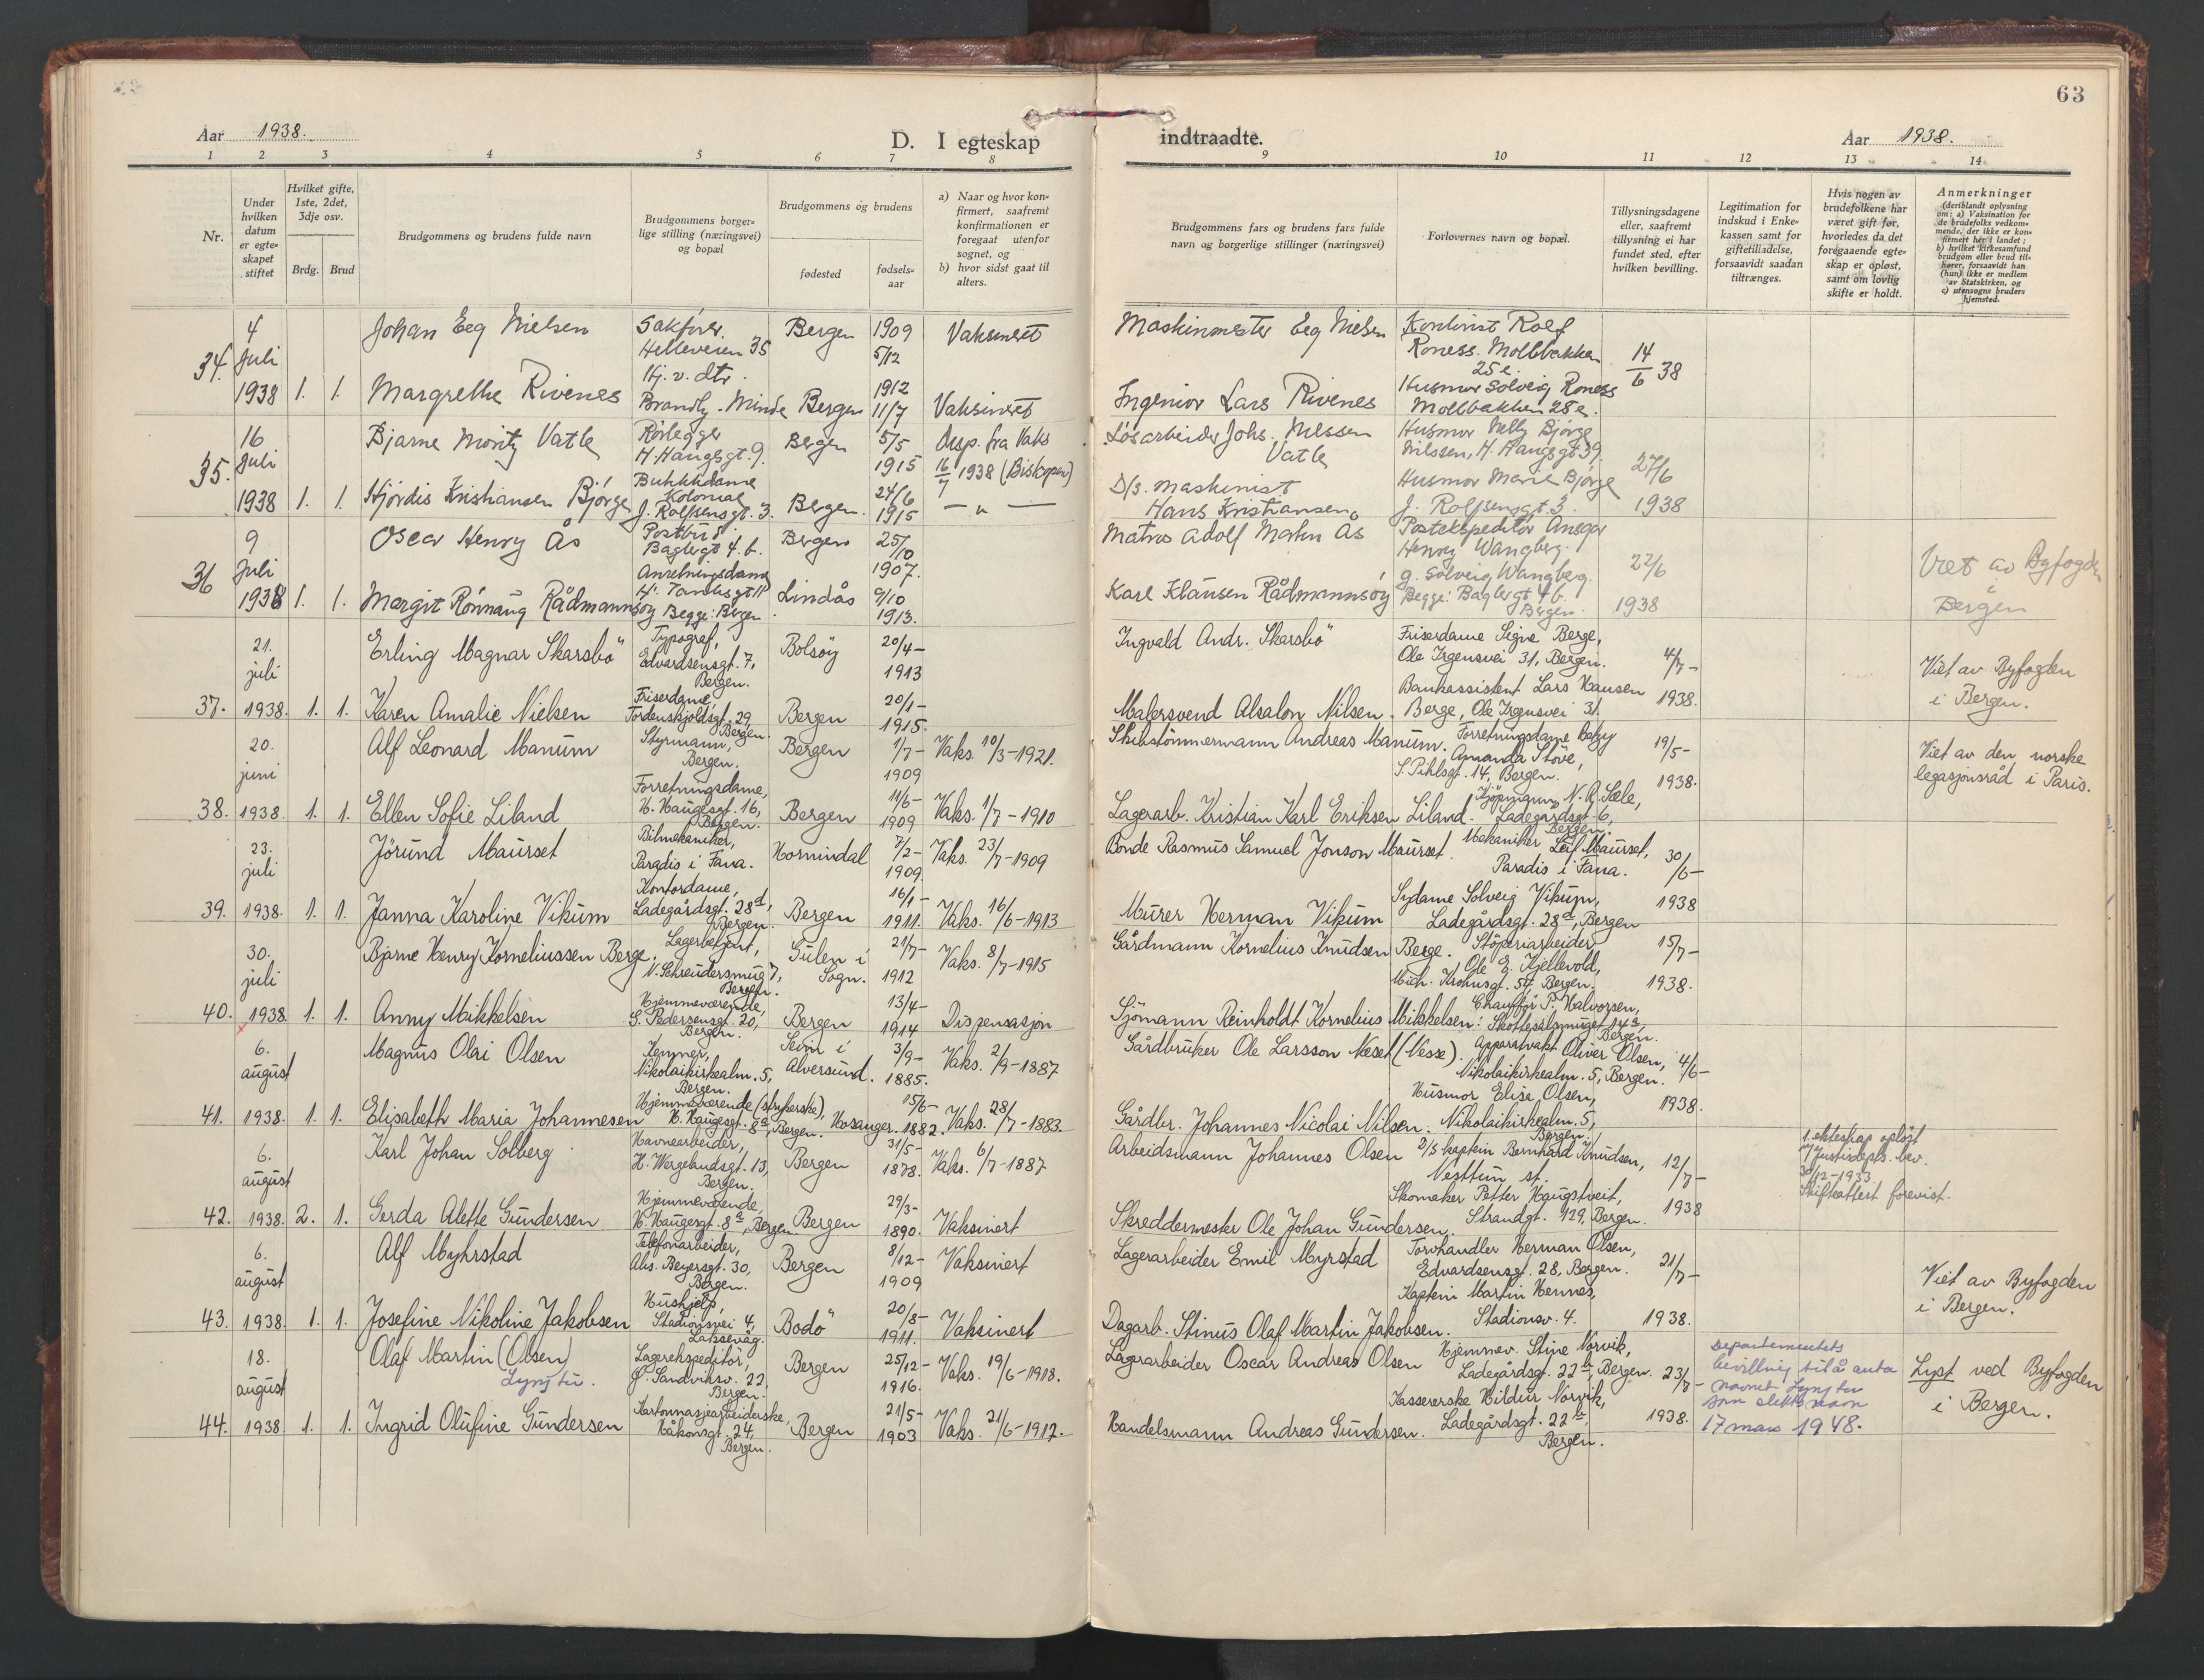 63
Aar 1938.
D. I egteskap
indtraadte.
Aar 1938.
1 2 3 4 5 6 7 8
9 10 11 12 13 14
Nr.
Under hvilken datum er egteskapet stiftet
Hvilket gifte, 1ste, 2det, 3dje osv.
Brdg. Brud
Brudgommens og brudens fulde navn
Brudgommens borgerlige stilling (næringsvei) og bopæl
Brudgommens og brudens
fødested
fødselsaar
a) Naar og hvor konfirmert, saafremt konfirmationen er foregaat utenfor sognet, og
b) hvor sidst gaat til alters.
Brudgommens fars og brudens fars fulde navn og borgerlige stillinger (næringsvei)
Forlovernes navn og bopæl.
Tillysningsdagene eller, saafremt tillysning ei har fundet sted, efter hvilken bevilling.
Legitimation for indskud i Enkekassen samt for giftetilladelse, forsaavidt saadan tiltrænges.
Hvis nogen av brudefolkene har været gift før, hvorledes da det foregaaende egteskap er opløst, samt om lovlig skifte er holdt.
Anmerkninger (deriblandt oplysning om: a) Vaksination for de brudefolks vedkommende, der ikke er konfirmert her i landet; b) hvilket kirkesamfund brudgom eller brud tilhører, forsaavidt han (hun) ikke er medlem av Statskirken, og c) utensogns bruders hjemsted.
34. 4 Juli 1938 1. 1.
Johan Eeg Nielsen Sakfører. Helleveien 35 Bergen 1909 5/12 Vaksineret
Margrethe Rivenes Hj. v. dtr. Brandly. Minde Bergen 1912 11/7 Vaksineret
Maskinmester Eeg Nielsen
Ingeniør Lars Rivenes
Kontorist Rolf Roness. Møllebakken 25 e.
Husmor Solveig Roness Møllebakken 25 e.
14/6 38
35. 16 Juli 1938 1. 1.
Bjarne Moritz Vatle Rørlegger H. Haugsgt. 9. Bergen 5/5 1915 Disp. fra Vaks 16/7 1938 (Biskopen)
Hjørdis Kristiansen Bjørge Butikkdame Kolonial J. Rolfsensgt. 3. Bergen. 24/6 1915 — " —
Løsarbeider Johs. Nilssen Vatle
D/s. maskinist Hans Kristiansen
Husmor Nelly Bjørge Nilssen, H. Haugsgt 39.
Husmor Marie Bjørge J. Rolfsensgt 3.
27/6 1938
36 9 Juli 1938 1. 1.
Oscar Henry Ås Postbud Baglergt 4. b. Bergen 25/10 1907.
Margit Rønnaug Rådmannsøy Anretningsdame H. Tanksgt 11 Begge: Bergen Lindås 9/10 1913.
Matros Adolf Martin Ås
Karl Klausen Rådmannsøy
Postekspeditør Ansgar Henry Wangberg.
g. Solveig Wangberg. Begge: Baglergt 4 b. Bergen.
22/6 1938
Viet av Byfogden i Bergen
37. 21. juli 1938. 1. 1.
Erling Magnar Skarsbö Typograf, Edvardsensgt. 7, Bergen. Bolsöy 20/4- 1913
Karen Amalie Nielsen Friserdame, Tordenskjoldsgt. 29, Bergen. Bergen 20/1- 1915.
Ingvald Andr. Skarsbö
Malersvend Alsalon Nilsen.
Friserdame Signe Berge, Ole Irgensvei 31, Bergen.
Bankassistent Lars Hansen Berge, Ole Irgensvei 31.
4/7- 1938.
Viet av Byfogden i Bergen.
38. 20. juni 1938. 1. 1.
Alf Leonard Manum Styrmann, Bergen. Bergen 1/7- 1909 Vaks. 10/3-1921.
Ellen Sofie Liland Forretningsdame, H. Haugesgt. 16, Bergen. Bergen 11/6- 1909 Vaks. 1/7-1910
Skibstömmermann Andreas Manum.
Lagerarb. Kristian Karl Eriksen Liland.
Forretningsdame Betzy Amanda Stöve, S. Pihlsgt. 14, Bergen.
Kjöpmann N. R. Sæle, Ladegårdsgt. 6, Bergen.
19/5- 1938.
Viet av den norske legasjonsråd i Paris.
39. 23. juli 1938. 1. 1.
Jörund Maurset Bilmekaniker, Paradis i Fana. Hornindal 7/2- 1909. Vaks. 23/7-1909
Janna Karoline Vikum Kontordame, Ladegårdsgt. 28d, Bergen. Bergen 16/1- 1911. Vaks. 16/6-1913
Bonde Rasmus Samuel Jonson Maurset.
Murer Herman Vikum
Mekaniker Leif Maurset, Paradis i Fana.
Sydame Solveig Vikum, Ladegårdsgt. 28d, Bergen
30/6- 1938
40. 30. juli 1938 1. 1.
Bjarne Henry Korneliussen Berge. Lagerbetjent, N. Schreudersmug 7, Bergen. Gulen i Sogn. 21/7- 1912 Vaks. 8/7-1915
Anny Mikkelsen Hjemmeværende, S. Pedersensgt. 20, Bergen. Bergen 13/4- 1914 Dispensasjon
Gårdmann Kornelius Knudsen Berge.
Sjömann Reinholdt Kornelius Mikkelsen:
Stöperiarbeider, Ole E. Kjellevold, Mich. Krohnsgt. 57, Bergen.
Chaufför P. Halvorsen, Skottesalsmuget 14a, Bergen.
15/7- 1938.
41. 6. august 1938. 1. 1.
Magnus Olai Olsen Kemner, Nikolaikirkealm. 5, Bergen. Seim i Alversund. 3/9- 1885. Vaks. 2/9-1887
Elisabeth Maria Johannesen Hjemmeværende (strykerske), H. Haugesgt. 8a, Bergen. Hosanger. 15/6- 1882. Vaks. 28/7-1883.
Gårdbruker Ole Larsson Neset (Vesse).
Gårdbr. Johannes Nicolai Nilsen.
Apparatvakt Oliver Olsen, Nikolaikirkealm. 5, Bergen.
Husmor Elise Olsen, Nikolaikirkealm. 5, Bergen.
4/6- 1938.
42. 6. august 1938. 2. 1.
Karl Johan Solberg Havnearbeider, H. Wergelandsgt. 13, Bergen. Bergen 31/5- 1878. Vaks. 6/7-1887
Gerda Alette Gundersen Hjemmeværende, H. Haugesgt. 8a, Bergen. Bergen 29/3- 1890. Vaksinert
Arbeidsmann Johannes Olsen
Skreddermester Ole Johan Gundersen.
D/S kaptein Bernhard Knudsen, Nesttun st.
Skomaker Petter Haugstveit, Strandgt. 129, Bergen.
12/7- 1938
1. ekteskap oplöst v/ Justisdepts. bev. 30/12-1933. Skifteattest forevist.
43. 6. august 1938. 1. 1.
Alf Myhrstad Telefonarbeider, Abs. Beyersgt. 30, Bergen. Bergen 8/12- 1909 Vaksinert
Josefine Nikoline Jakobsen Hushjelp, Stadionsvei 4, Laksevåg. Bodö 20/8- 1911. Vaksinert
Lagerarbeider Emil Myrstad
Dagarb. Stinus Olaf Martin Jakobsen.
Torvhandler Herman Olsen, Edvardsensgt. 28, Bergen.
Kaptein Martin Hennes, Stadionsv. 4.
21/7- 1938.
Viet av Byfogden i Bergen.
44. 18. august 1938 1. 1.
Olaf Martin (Olsen) Lyngtu. Lagerekspeditör, G. Sandviksv. 22, Bergen. Bergen 25/12- 1916. Vaks. 19/6-1918.
Ingrid Olufine Gundersen Kartonnasjearbeiderske, Håkonsgt. 24, Bergen. Bergen 21/5- 1903 Vaks. 21/6-1912.
Lagerarbeider Oscar Andreas Olsen
Handelsmann Andreas Gundersen.
Hjemmev. Stine Norvik, Ladegårdsgt. 22b, Bergen.
Kassererske Hildur Norvik, Ladegårdsgt. 22b, Bergen.
23/7- 1938.
Departementets bevilling til å anta navnet Lyngtu som slektsnavn 17 mars 1948.
Lyst ved Byfogden i Bergen.